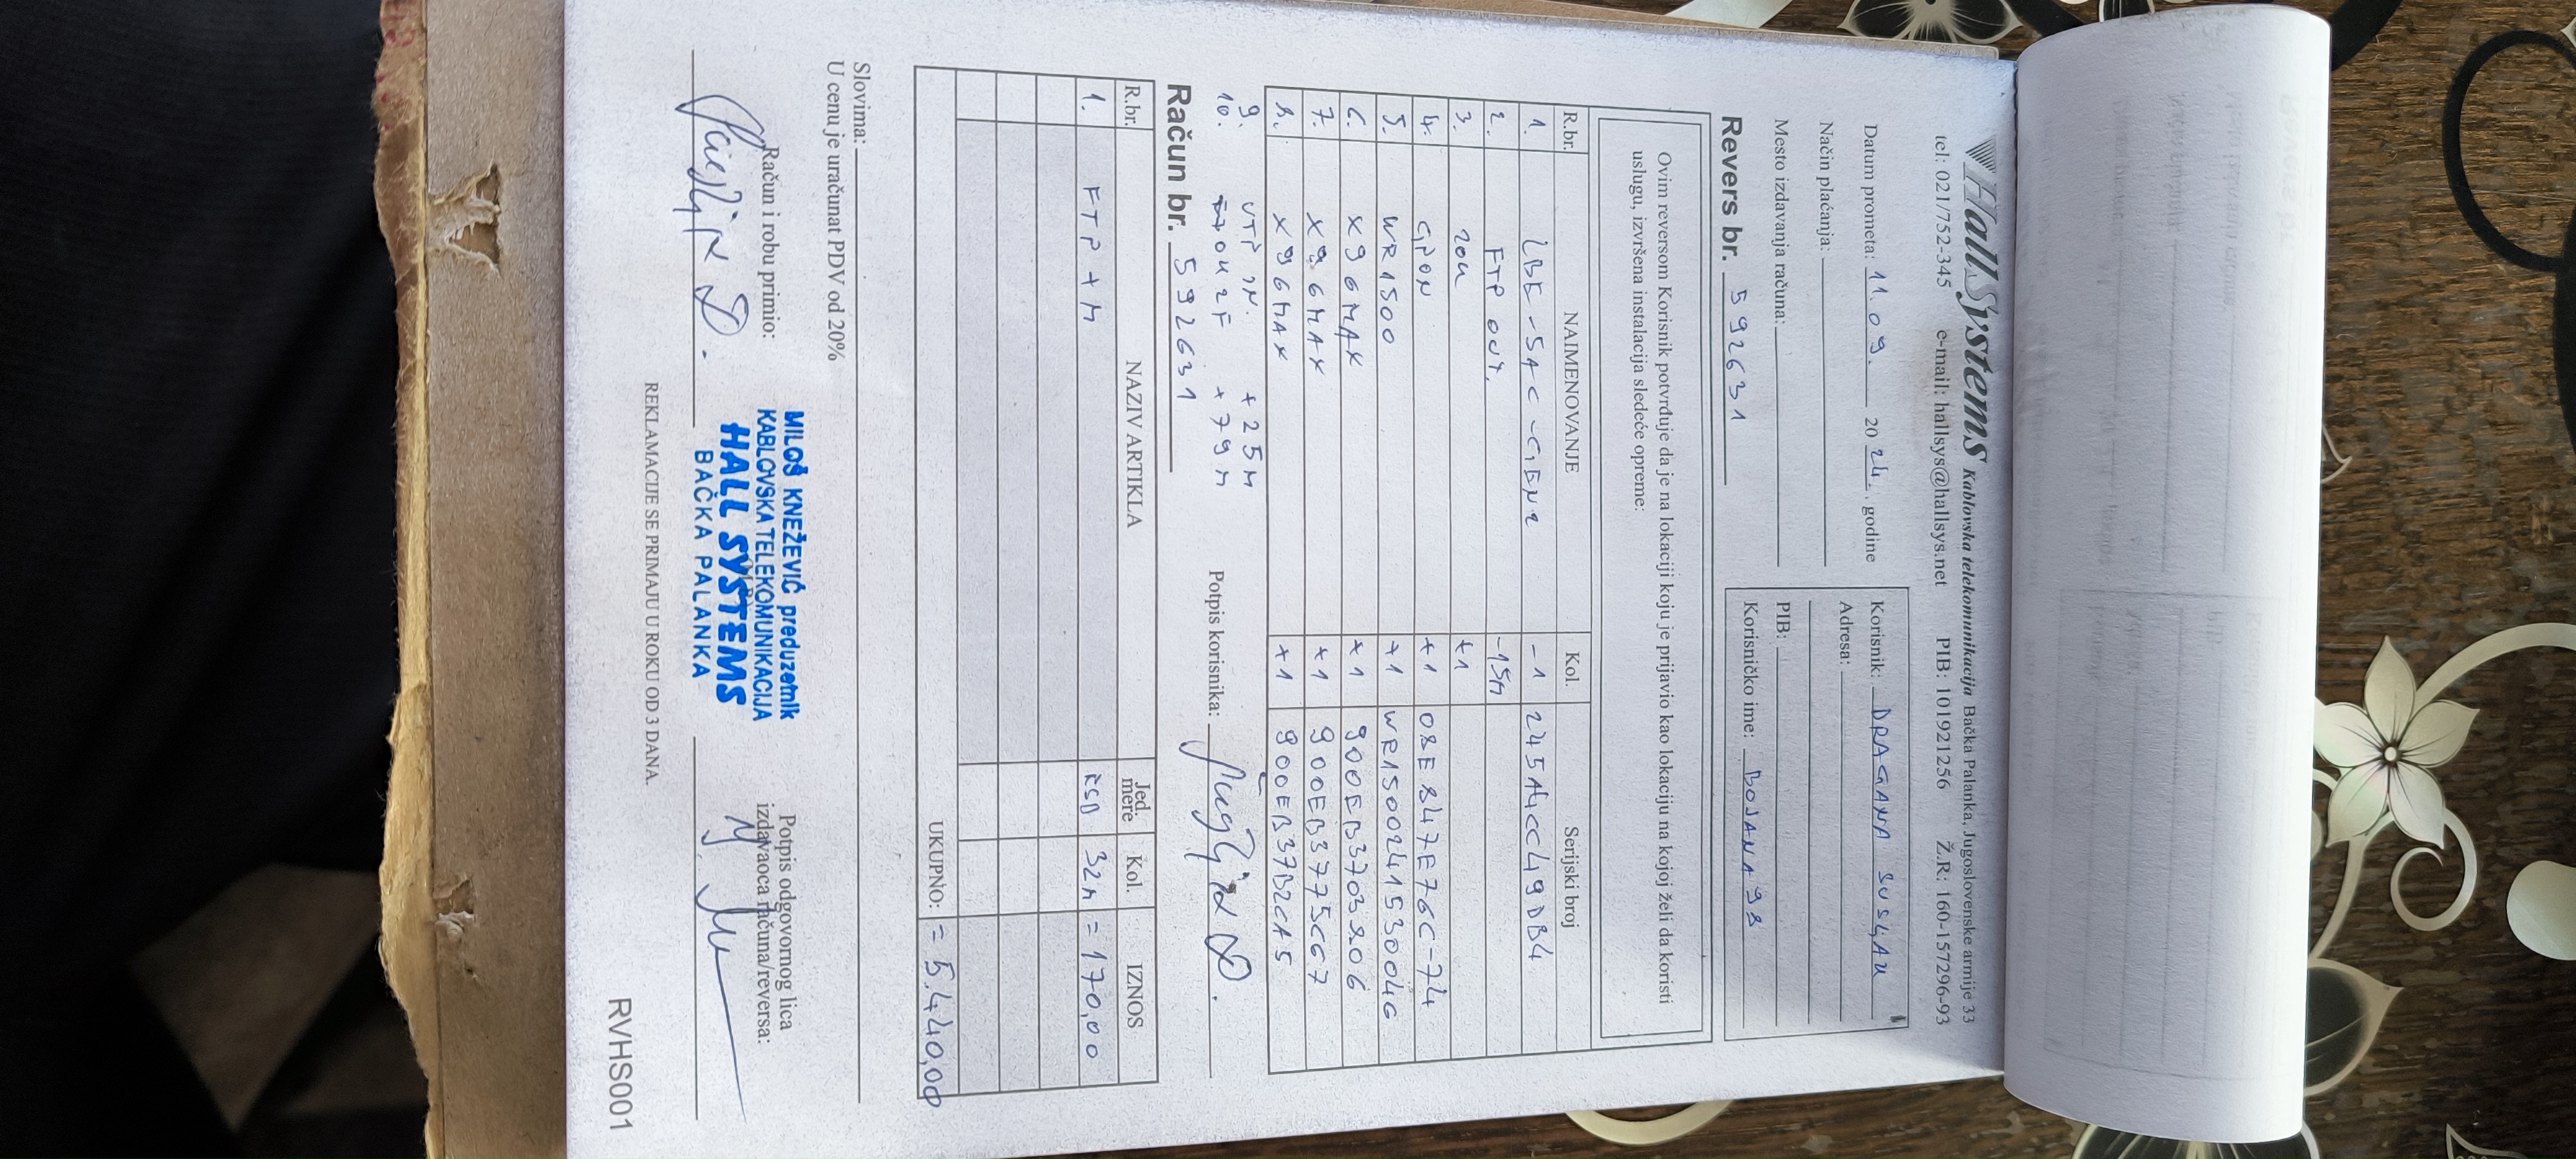 HallSystems Kablovska telekomunikacija Bačka Palanka, Jugoslovenske armije 33
tel: 021/752-345 e-mail: hallsys@hallsys.net PIB: 101921256 Ž.R: 160-157296-93
Datum prometa: 11.09. 20 24. godine
Način plaćanja:
Mesto izdavanja računa:
Korisnik: DRAGANA
Adresa:
PIB:
Korisničko ime: BOJANA98
Revers br. 592631
Ovim reversom Korisnik potvrđuje da je na lokaciji koju je prijavio kao lokaciju na kojoj želi da koristi
uslugu, izvršena instalacija sledeće opreme:
R.br. NAIMENOVANJE Kol. Serijski broj
1. LBE-5AC-GEN2 -1 245A4CC49DB4
2. FTP OUT. -15M
3. ZOK +1
4. GPON +1 08E847E76C-74
5. WR1500 +1
6. X96MAX +1 900EB3703806
7. X96MAX +1 900EB3775C67
8. X96MAX +1 900EB37B2CA5
9. UTP +25M
10. 2F +79M
Potpis korisnika:
Račun br. 592631
R.br. NAZIV ARTIKLA Jed. mere Kol. IZNOS
1. FTP + M RSD 32M =170,00
UKUPNO: =5.440,00
Slovima:
U cenu je uračunat PDV od 20%
Račun i robu primio:
MILOŠ KNEŽEVIĆ preduzetnik
KABLOVSKA TELEKOMUNIKACIJA
HALL SYSTEMS
BAČKA PALANKA
Potpis odgovornog lica
izdavaoca računa/reversa:
REKLAMACIJE SE PRIMAJU U ROKU OD 3 DANA.
RVHS001